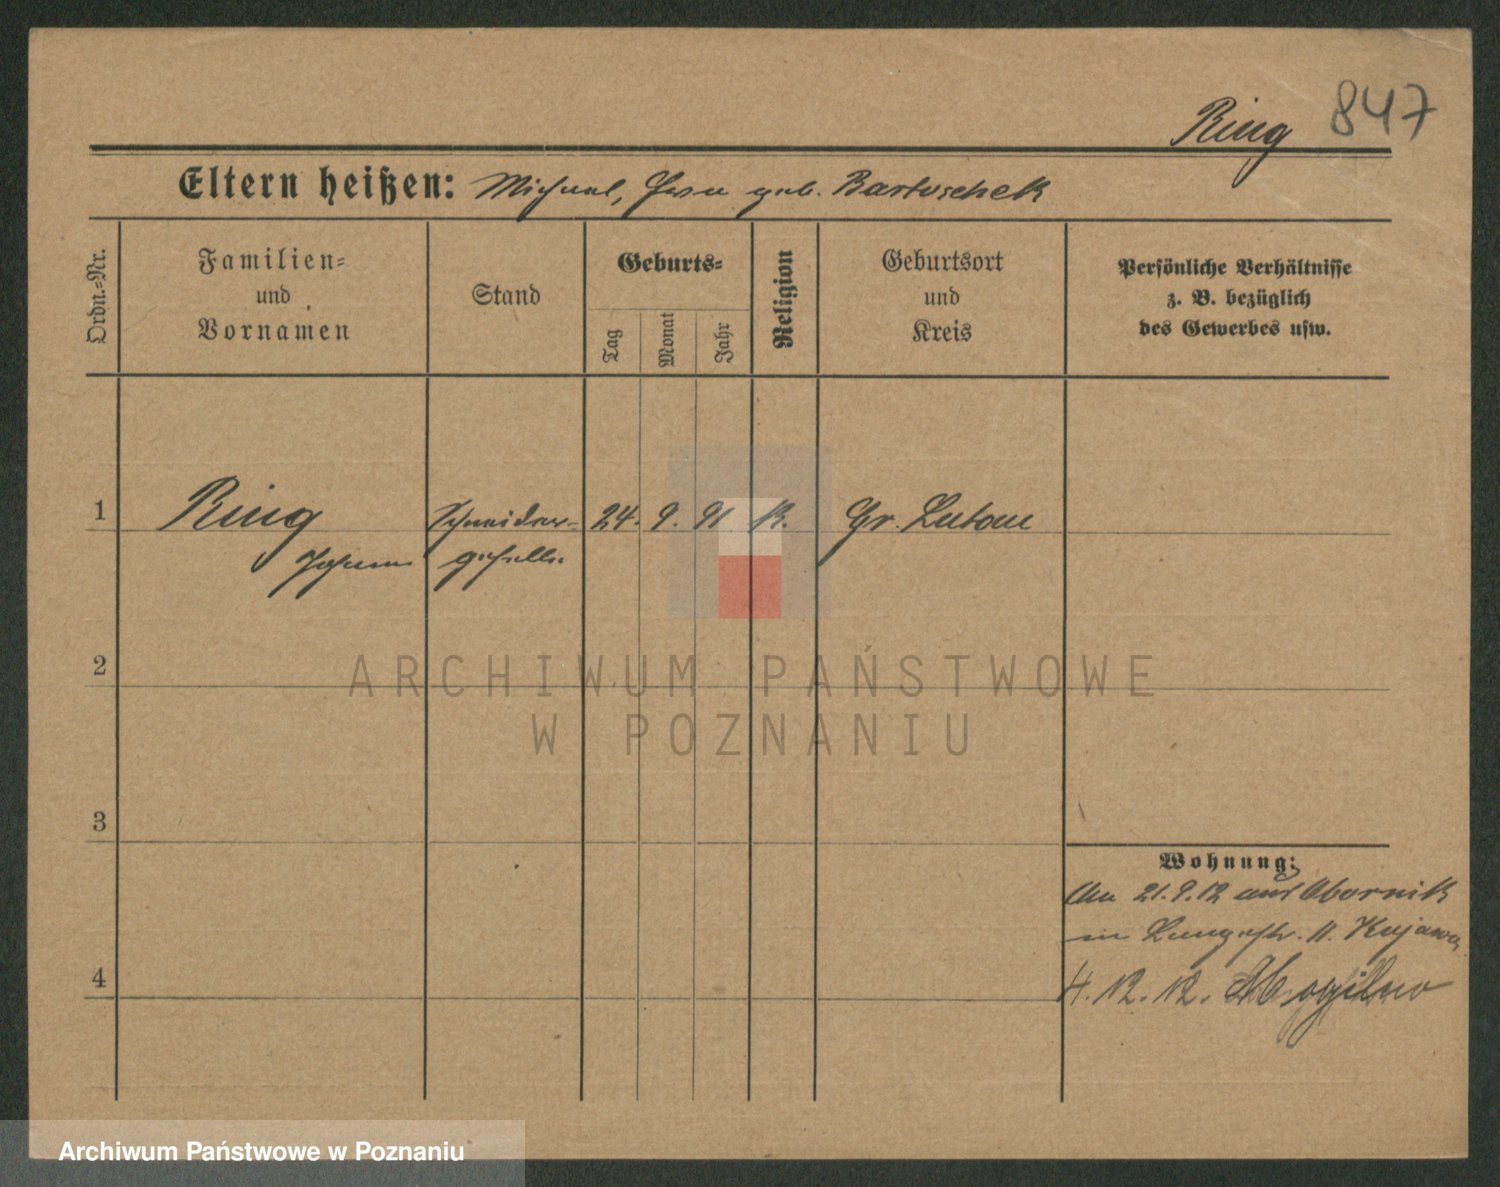 Ring 847
Eltern heißen: Michael, Eva geb. Bartoschek
Ordn.-Nr.
Familien-
und
Vornamen
Stand
Geburts-
Tag
Monat
Jahr
Religion
Geburtsort
und
Kreis
Persönliche Verhältnisse
z. B. bezüglich
des Gewerbes usw.
1 Ring Schneider- 24. 9. 91 K. Gr. Lutom
Johann geselle
2
ARCHIWUM PAŃSTWOWE
W POZNANIU
3
Wohnung:
21.9.12 aus Obornik
in Langestr. 11. Kujawa
4. 12. 12. Mogilno
4
Archiwum Państwowe w Poznaniu